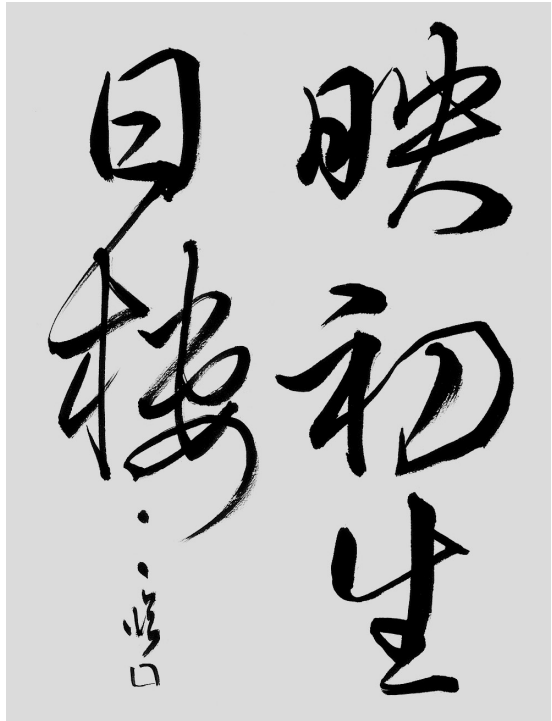 映初生
日樓